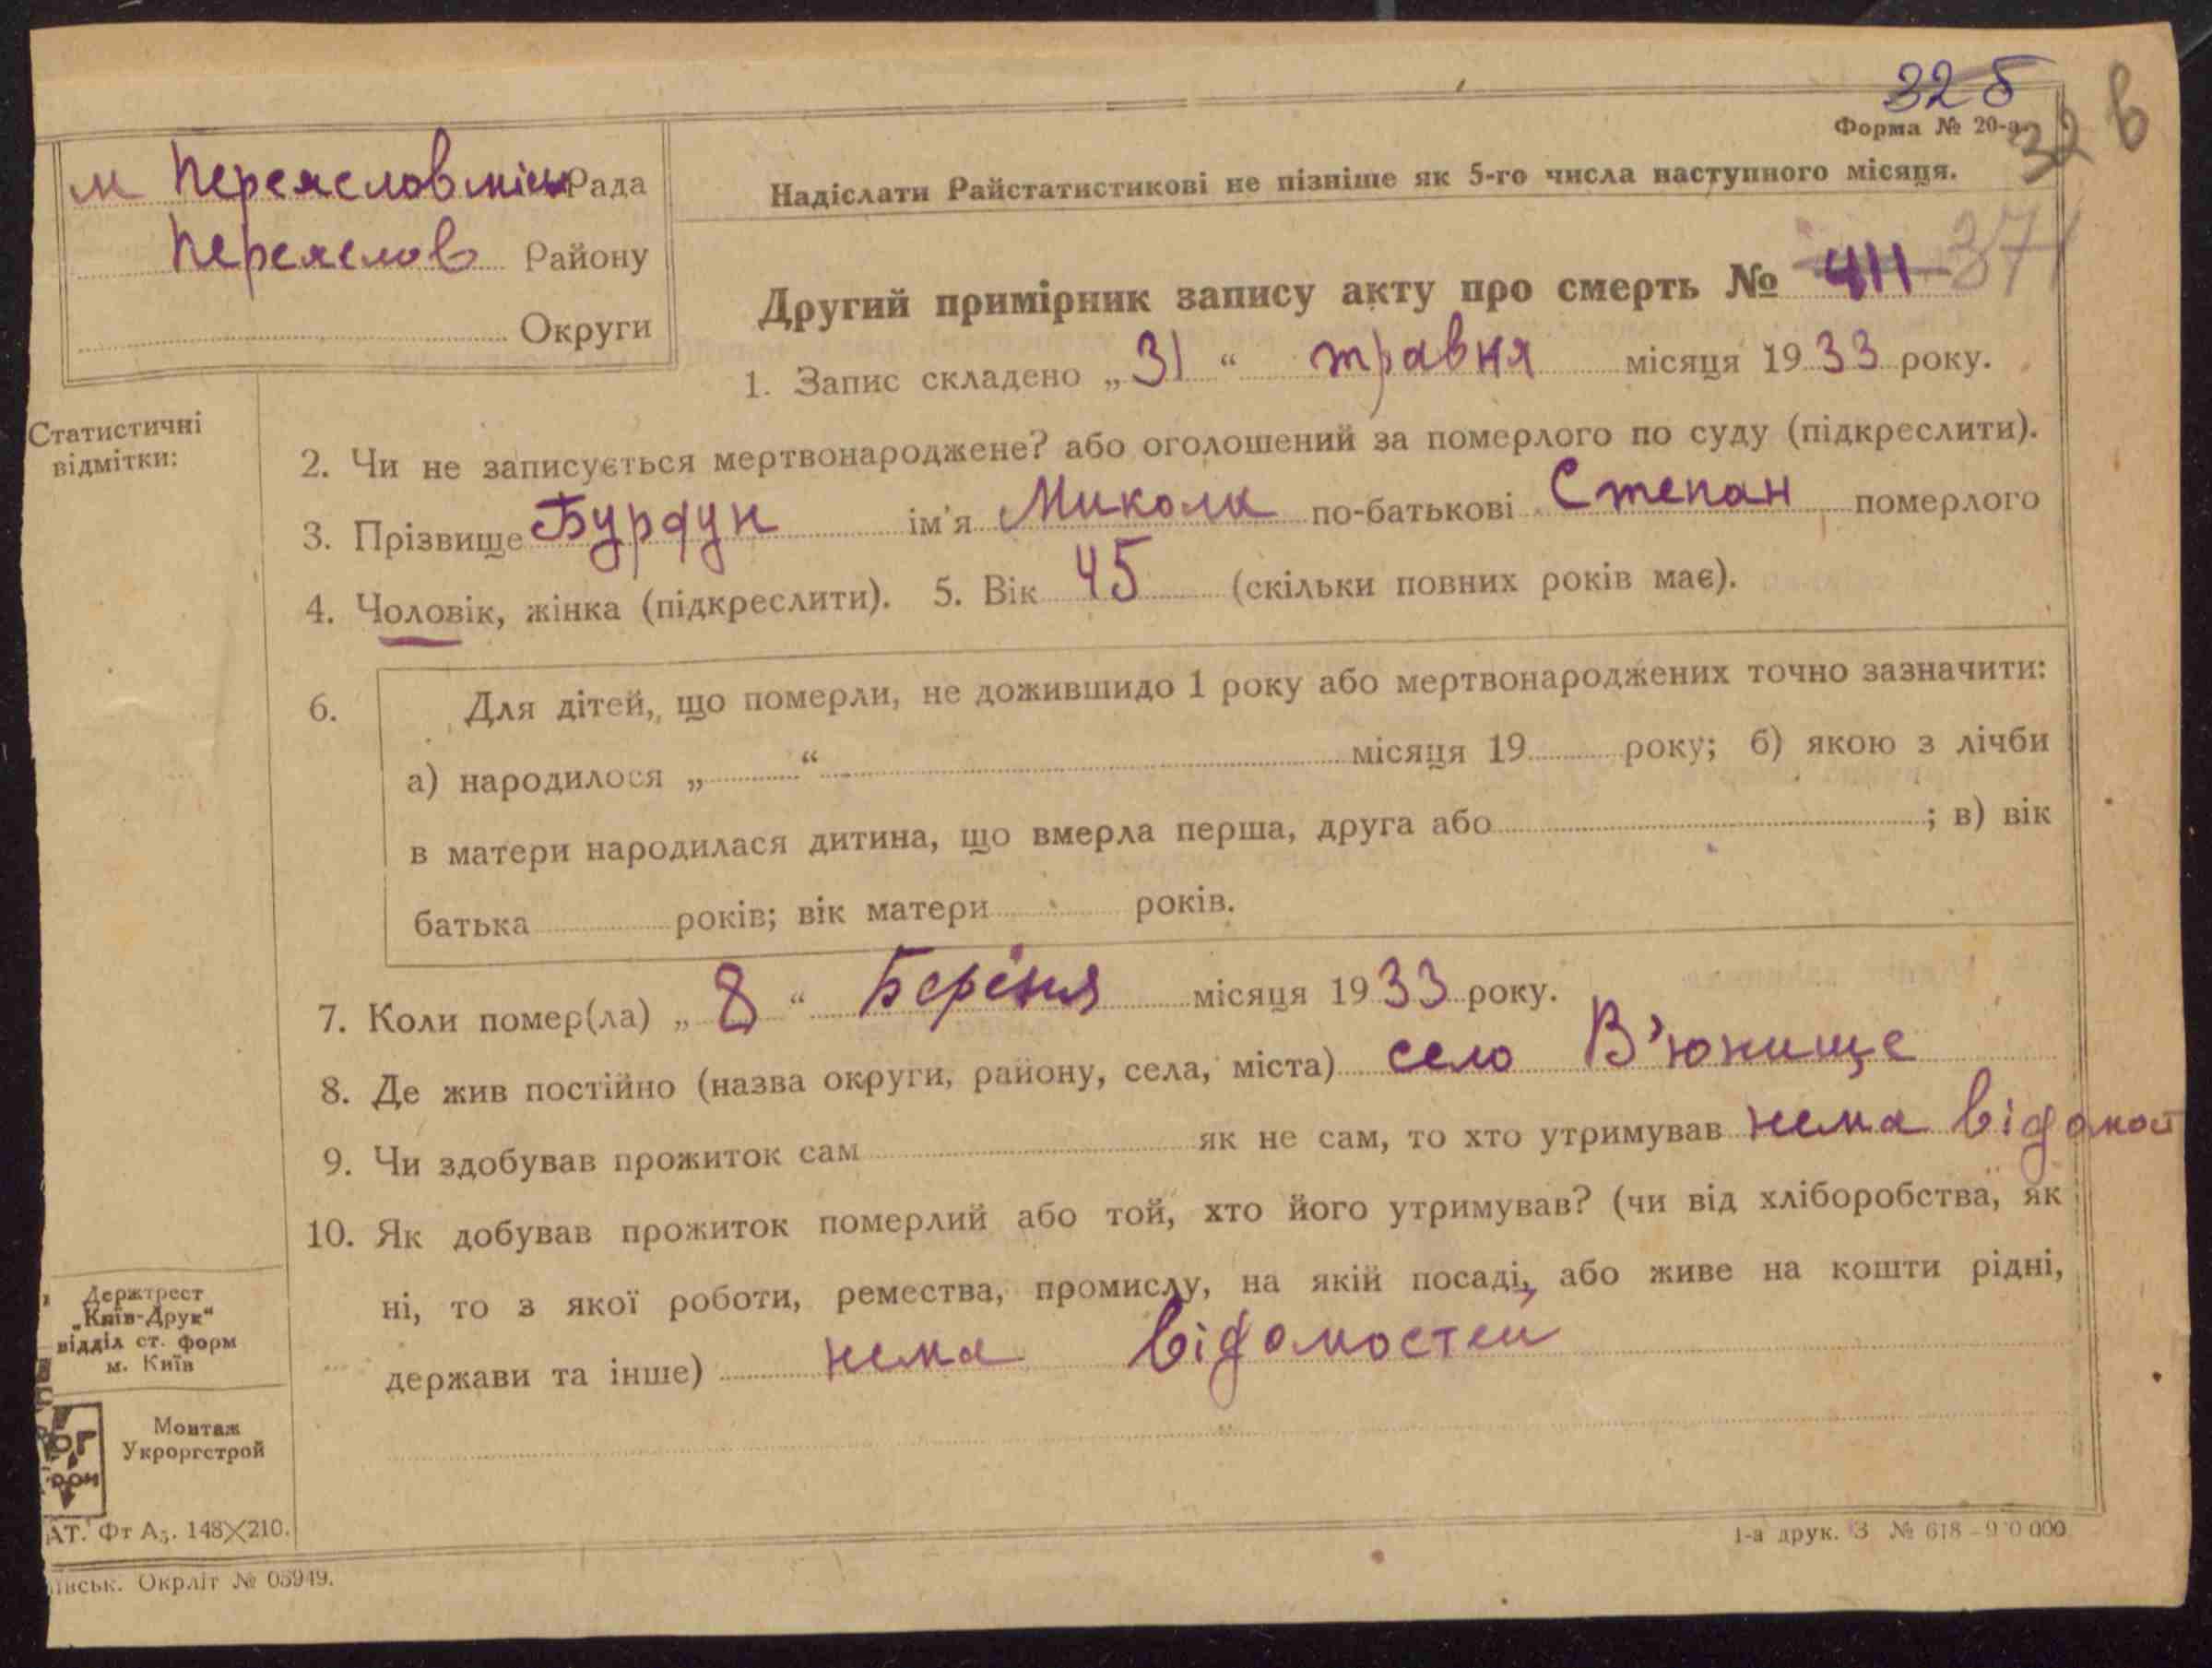 32 б
Форма № 20-а
32 в
м Переясловміськ Рада
Надіслати Райстатистикові не пізніше як 5-го числа наступного місяця.
Переяслов Району
Округи
Другий примірник запису акту про смерть № 411 371
1. Запис складено „31“ травня місяця 1933 року.
Статистичні
відмітки:
2. Чи не записується мертвонароджене? або оголошений за померлого по суду (підкреслити).
3. Прізвище Бурдун ім'я Микола по-батькові Степан померлого
4. Чоловік, жінка (підкреслити). 5. Вік 45 (скільки повних років має).
6. Для дітей, що померли, не дожившидо 1 року або мертвонароджених точно зазначити:
а) народилося „ “ місяця 19 року; б) якою з лічби
в матери народилася дитина, що вмерла перша, друга або ; в) вік
батька років; вік матери років.
7. Коли помер(ла) „8“ Березня місяця 1933 року.
8. Де жив постійно (назва округи, району, села, міста) село В'юнище
9. Чи здобував прожиток сам як не сам, то хто утримував нема відомост
10. Як добував прожиток померлий або той, хто його утримував? (чи від хліборобства, як
ні, то з якої роботи, ремества, промислу, на якій посаді, або живе на кошти рідні,
держави та інше) нема відомостей
Держтрест
„Київ-Друк“
відділ ст. форм
м. Київ
Монтаж
Укроргстрой
АТ. Фт А₅. 148×210.
1-а друк. З № 618
івськ. Окрліт № 05949.